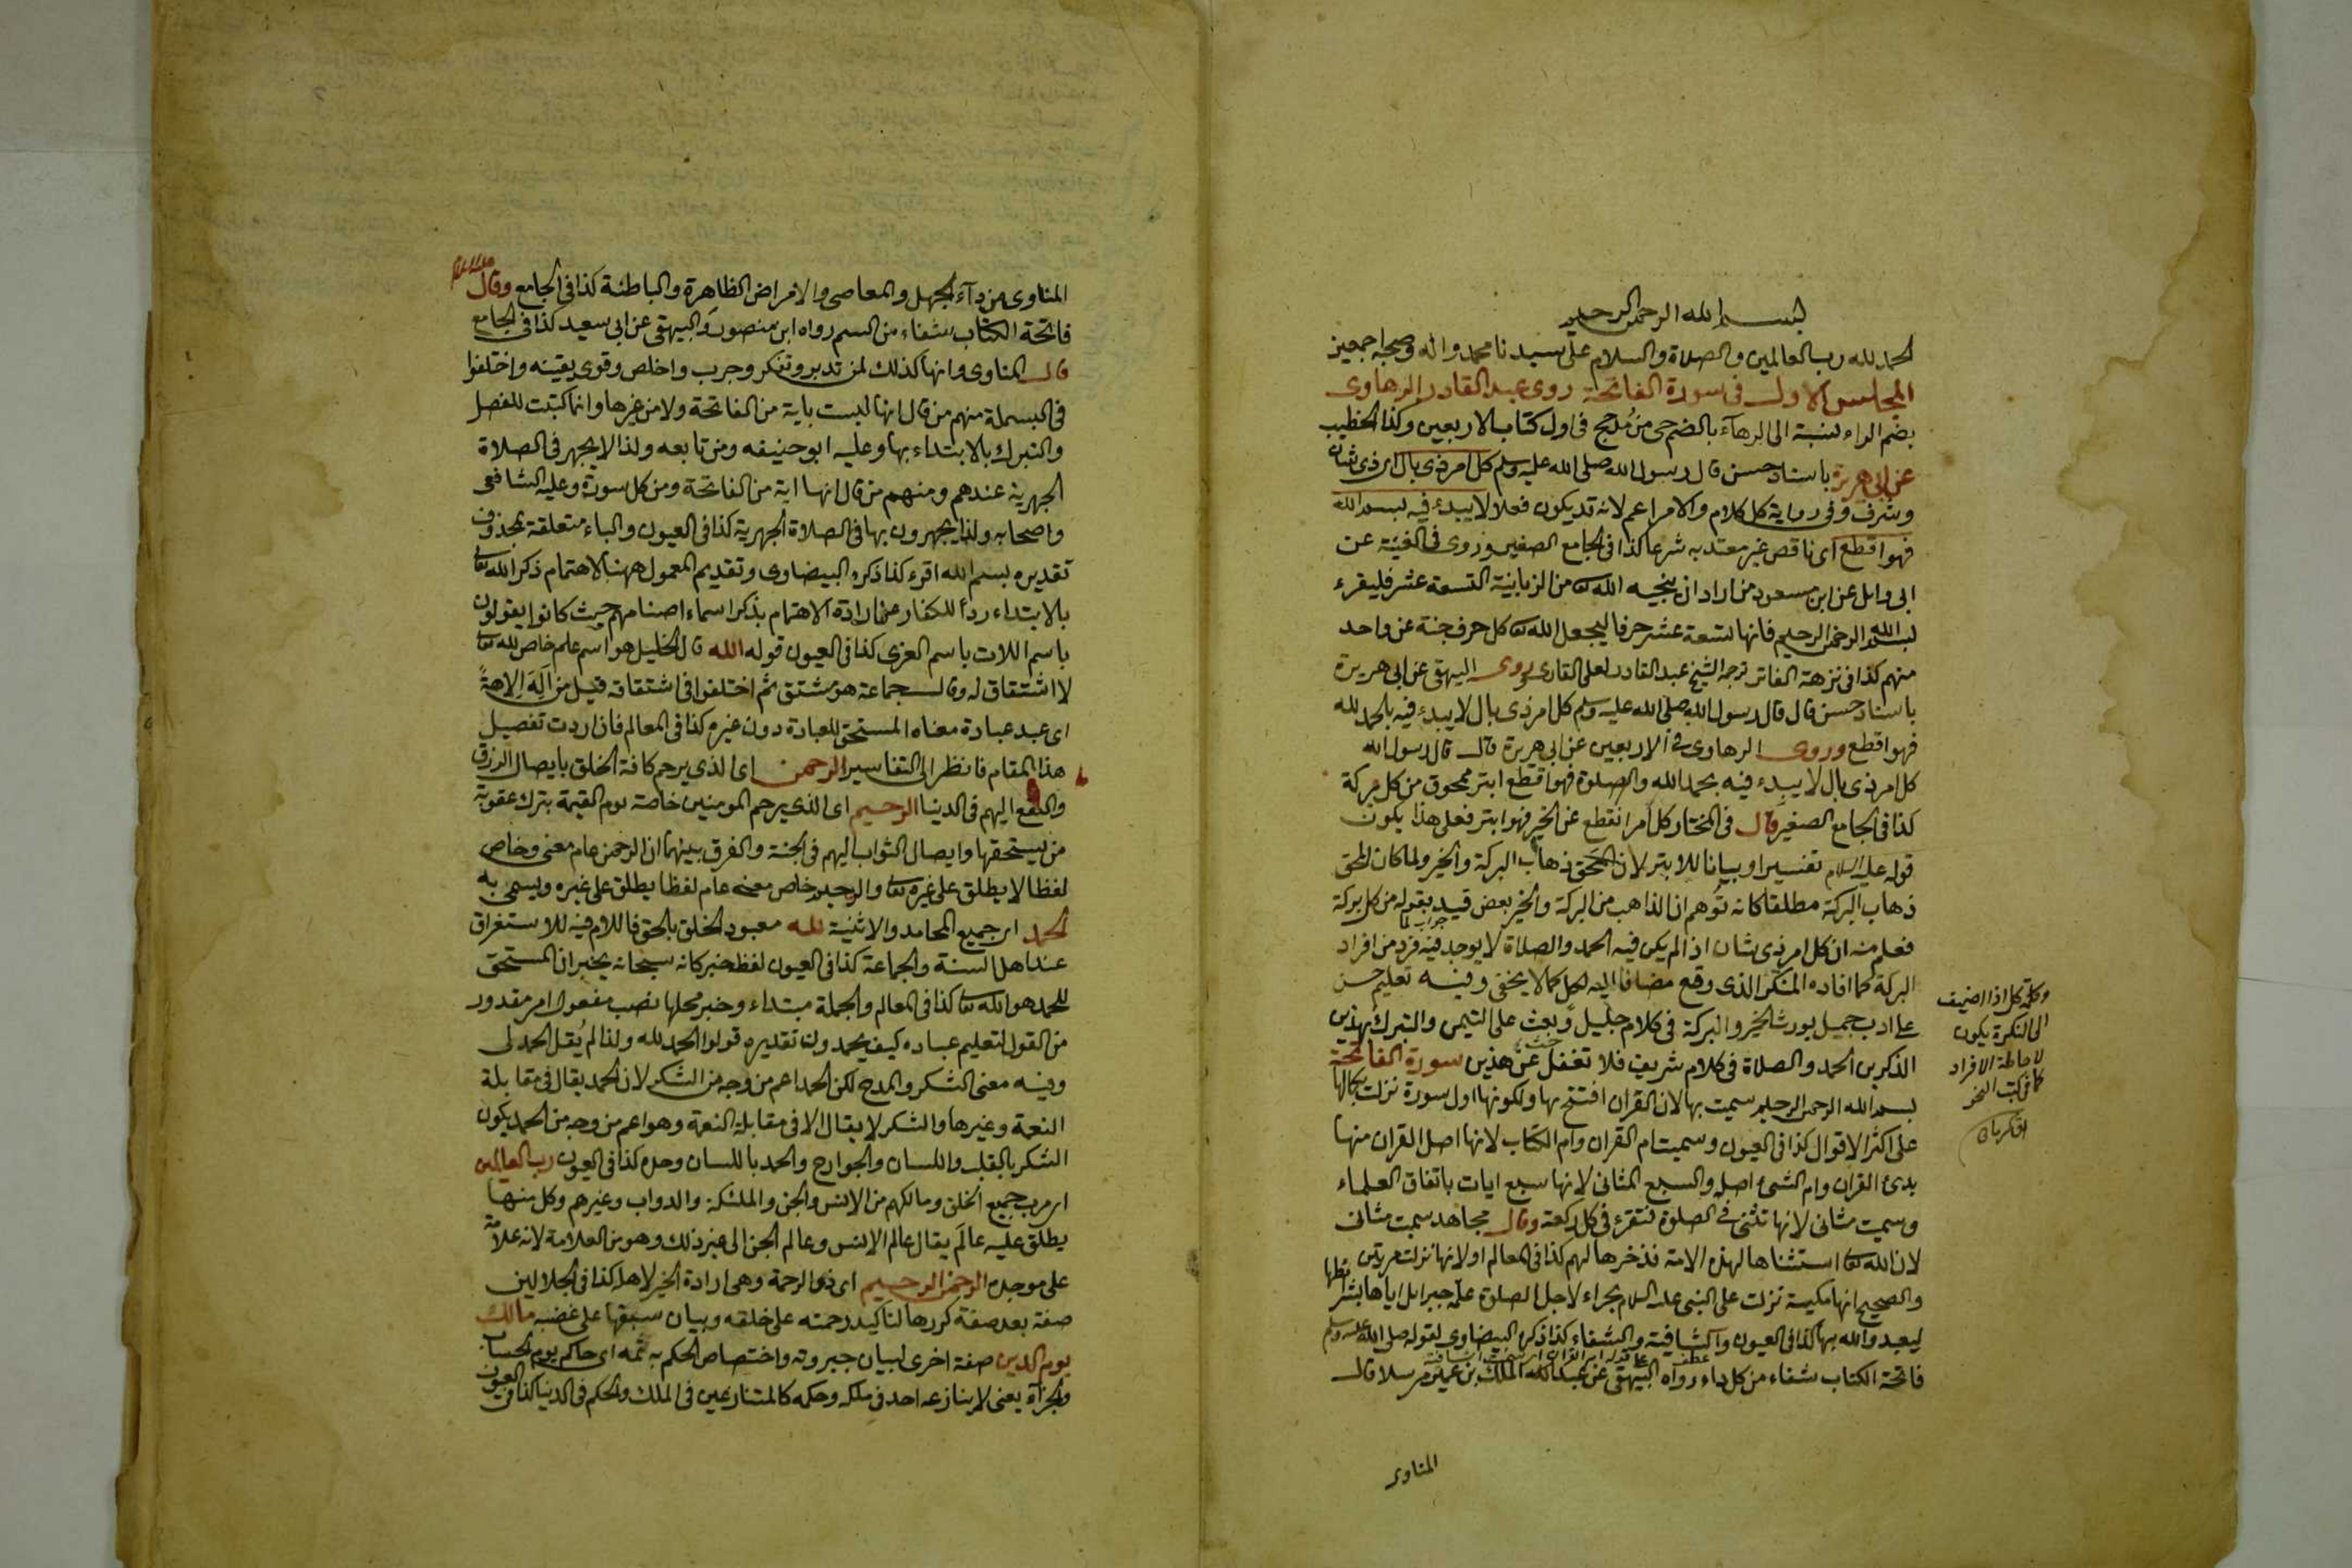 بسم الله الرحمن الرحيم
الحمد لله رب العالمين والصلاة والسلام على سيدنا محمد واله وصحبه اجمعين
المجلس الاول في سورة الفاتحة روى عبد القادر الرهاوى
بضم الراء نسبة الى الرهآء بالضم حى من مذحج فى اول كتاب الاربعين وكذا الخطيب
عن ابى هريرة باسناد حسن قال رسول الله صلى الله عليه وسلم كل امر ذى بال اى ذى شان
وشرف وفى رواية كل كلام والامر اعم لانه قد يكون فعلا لا يبدء فيه ببسم الله
فهو اقطع اى ناقص غير معتد به شرعا كذا فى الجامع الصغير وروى فى الغنية عن
ابى وائل عن ابن مسعود من اراد ان ينجيه الله تع من الزبانية التسعة عشر فليقرء
بسم الله الرحمن الرحيم فانها تسعة عشر حرفا ليجعل الله تع كل حرف جنة عن واحد
منهم كذا فى نزهة الفاتر ترجمة الشيخ عبد القادر لعلى القارى وروى البيهقى عن ابى هريرة
باسناد حسن قال قال رسول الله صلى الله عليه وسلم كل امر ذى بال لا يبدء فيه بالحمد لله
فهو اقطع وروى الرهاوى فى الاربعين عن ابى هريرة قال قال رسول الله
كل امر ذى بال لا يبدء فيه بحمد الله والصلوة فهو اقطع ابتر ممحوق من كل بركة
كذا فى الجامع الصغير قال فى المختار كل امر انقطع عن الخير فهو ابتر فعلى هذا يكون
قوله عليه السلام تفسيرا وبيانا للابتر لان المحق ذهاب البركة والخير ولما كان المحق
ذهاب البركة مطلقا كانه توهم ان الذاهب من البركة والخير بعض قيد بقوله من كل بركة
جواب لما
فعلم منه ان كل امر ذى شان اذا لم يكن فيه الحمد والصلاة لا يوجد فيه فرد من افراد
البركة كما افاده المنكر الذى وقع مضافا اليه لكل كما لا يخفى وفيه تعليم حسن
على ادب جميل يورث الخير والبركة فى كلام جليل وبعث على التيمن والتبرك بهذين
الذكرين الحمد والصلاة فى كلام شريف فلا تغفل عن هذين سورة الفاتحة
بسم الله الرحمن الرحيم سميت بها لان القران افتتح بها ولكونها اول سورة نزلت بكمالها
على اكثر الاقوال كذا فى العيون وسميت ام القران وام الكتاب لانها اصل القران منها
بدئ القران وام الشئ اصله والسبع المثانى لانها سبع ايات باتفاق العلماء
وسميت مثانى لانها تثنى فى الصلوة فتقرء فى كل ركعة وقال مجاهد سميت مثانى
لان الله تع استثناها لهذه الامة فذخرها لهم كذا فى المعالم او لانها نزلت مرتين
والصحيح انها مكية نزلت على النبى عليه السلام بحراء لاجل الصلوة علمه جبرائل اياها
ليعبدوا الله بها كذا فى العيون والشافية والشفاء كذا ذكره البيضاوى لقوله صلى الله عليه وسلم
فاتحة الكتاب شفاء من كل داء رواه البيهقى عن عبد الملك بن عمير مرسلا قال
المناوى
وكلمة كل اذا اضيف
الى النكرة يكون
لاحاطة الافراد
كما فى كتب النحو
المناوى من دآء الجهل والمعاصى والامراض الظاهرة والباطنة كذا فى الجامع وقال عليه السلام
فاتحة الكتاب شفاء من السم رواه ابن منصور والبيهقى عن ابى سعيد كذا فى الجامع
قال المناوى وانها كذلك لمن تدبر وتفكر وجرب واخلص وقوى يقينه واختلفوا
فى البسملة منهم من قال انها ليست باية من الفاتحة ولا من غيرها وانما كتبت للفصل
والتبرك بالابتداء بها وعليه ابو حنيفه ومن تابعه ولذا لا يجهر فى الصلاة
الجهرية عندهم ومنهم من قال انها اية من الفاتحة ومن كل سورة وعليه الشافعى
واصحابه ولذا يجهرون بها فى الصلاة الجهرية كذا فى العيون والباء متعلقة بمحذوف
تقديره بسم الله اقرء كذا ذكره البيضاوى وتقديم المعمول ههنا لاهتمام ذكر الله تعا
بالابتداء ردأ للكفار عن ارادة الاهتمام بذكر اسماء اصنامهم حيث كانوا يقولون
باسم اللات باسم العزى كذا فى العيون قوله الله قال الخليل هو اسم علم خاص لله تعا
لا اشتقاق له وقال جماعة هو مشتق ثم اختلفوا فى اشتقاقه قيل من اَلَهَ اِلاهةً
اى عبد عبادة معناه المستحق للعبادة دون غيره كذا فى المعالم فان اردت تفصيل
هذا المقام فانظر الى التفاسير الرحمن اى الذى يرحم كافة الخلق بايصال الرزق
والنفع اليهم فى الدنيا الرحيم اى الذى يرحم المومنين خاصة يوم القيمة بترك عقوبة
من يستحقها وايصال الثواب اليهم فى الجنة والفرق بينهما ان الرحمن عام معنى وخاص
لفظا لا يطلق على غيره تعا والرحيم خاص معنى عام لفظا يطلق على غيره ويسمى به
الحمد اى جميع المحامد والاثنية لله معبود الخلق بالحق فاللام فيه للاستغراق
عند اهل السنة والجماعة كذا فى العيون لفظه خبر كانه سبحانه يخبر ان المستحق
للحمد هو الله تعا كذا فى المعالم والجملة مبتداء وخبر محلها نصب مفعول امر مقدور
من القول لتعليم عباده كيف يحمدونه تقديره قولوا الحمد لله ولذا لم يُقل الحمد لى
وفيه معنى الشكر والمدح لكن الحمد اعم من وجه من الشكر لان الحمد يقال فى مقابلة
النعمة وغيرها والشكر لا يقال الا فى مقابلة النعمة وهو اعم من وجه من الحمد يكون
الشكر بالقلب واللسان والجوارح والحمد باللسان وحده كذا فى العيون رب العالمين
اى مرب جميع الخلق ومالكهم من الانس والجن والملئكة والدواب وغيرهم وكل منها
يطلق عليه عالَم يقال عالم الانس وعالم الجن الى غير ذلك وهو من العلامة لانه علامة
على موجده الرحمن الرحيم اى ذى الرحمة وهى ارادة الخير لاهله كذا فى الجلالين
صفة بعد صفة كررها لتاكيد رحمته على خلقه وبيان سبقها على غضبه مالك
يوم الدين صفة اخرى لبيان جبروته واختصاص الحكم به ثمه اى حاكم يوم الحساب
والجزآء يعنى لا ينازعه احد فى ملكه وحكمه كالمتنازعين فى الملك والحكم فى الدنيا كذا فى العيون